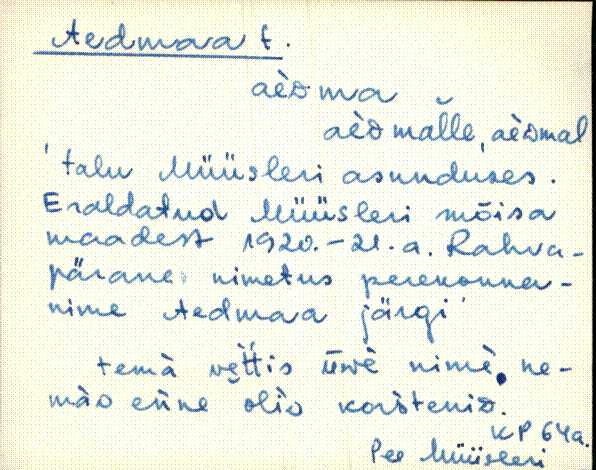 Aedmaa t.
aèᴅma
aèᴅmal̆le, aèᴅmal
' talu Müüsleri asunduses.
Eraldatud Müüsleri mõisa
maadest 1920.-21. a. Rahva-
pärane nimetus perekonna-
nime Aedmaa järgi '
temà vèt́t́is ūwè nimè. ne-
màᴅ enne òliᴅ korsteniᴅ.
KP 64a.
Pee Müüsleri